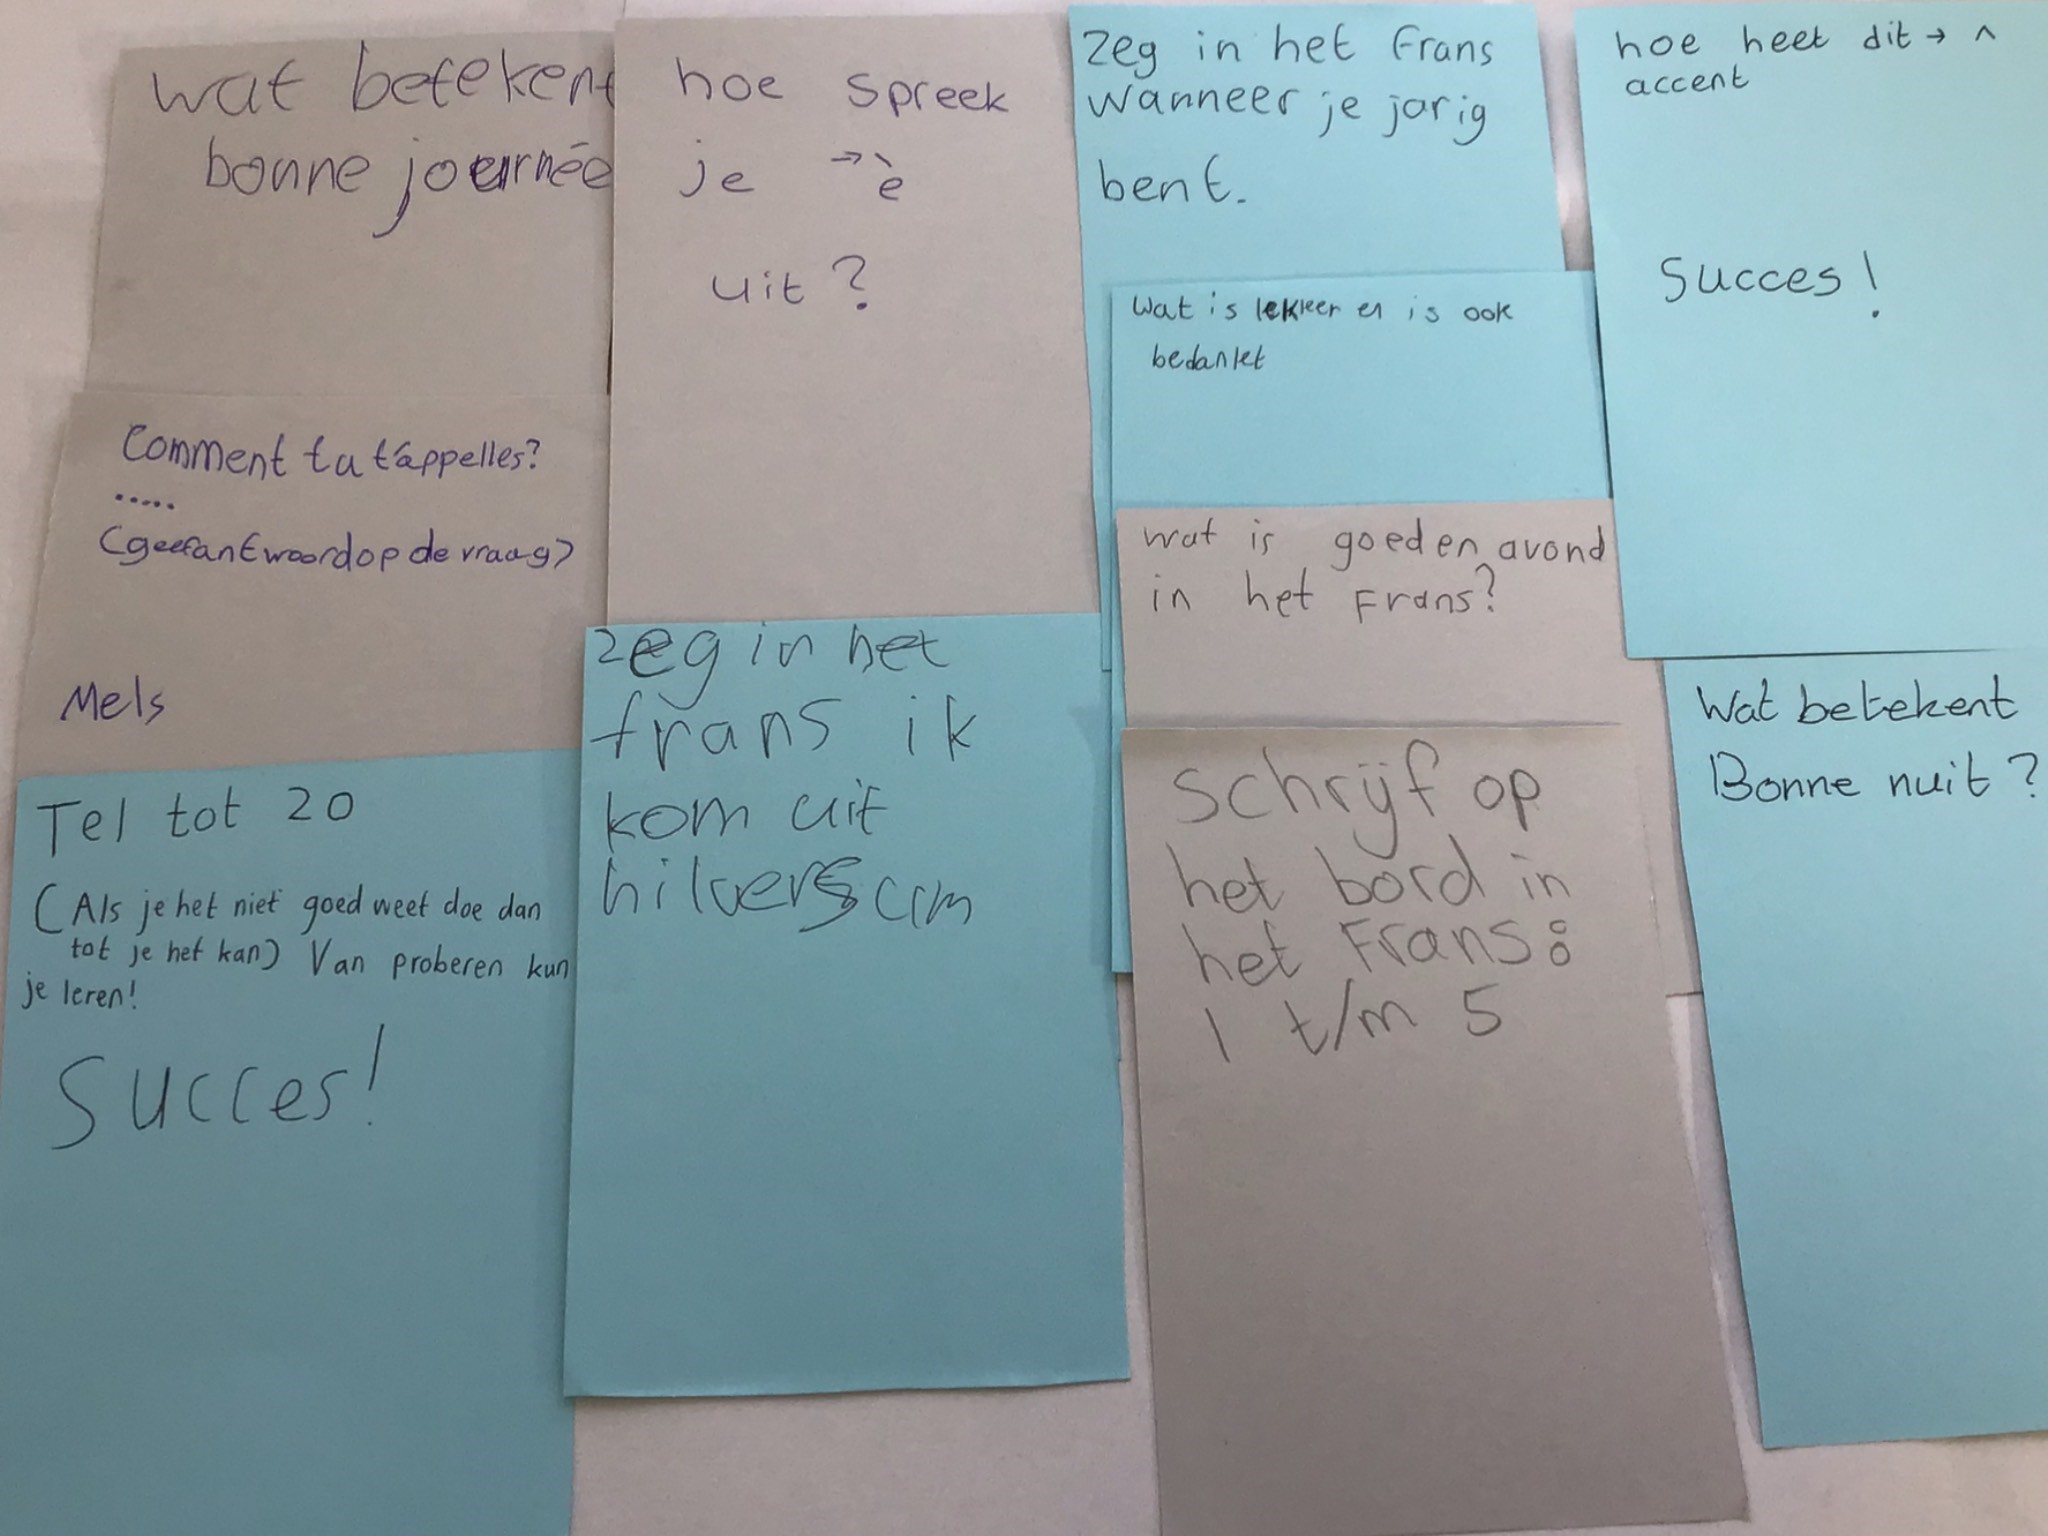 wat betekent
bonne journée
hoe spreek
je → è
uit?
zeg in het Frans
wanneer je jarig
bent.
hoe heet dit → ^
accent
Succes!
Wat is lekker en is ook
bedankt
Comment tu t'áppelles?
.....
(geef antwoord op de vraag)
Mels
wat is goeden avond
in het Frans?
zeg in het
frans ik
kom uit
hilversum
Schrijf op
het bord in
het Frans:
1 t/m 5
Wat betekent
Bonne nuit?
Tel tot 20
(Als je het niet goed weet doe dan
tot je het kan) Van proberen kun
je leren!
Succes!